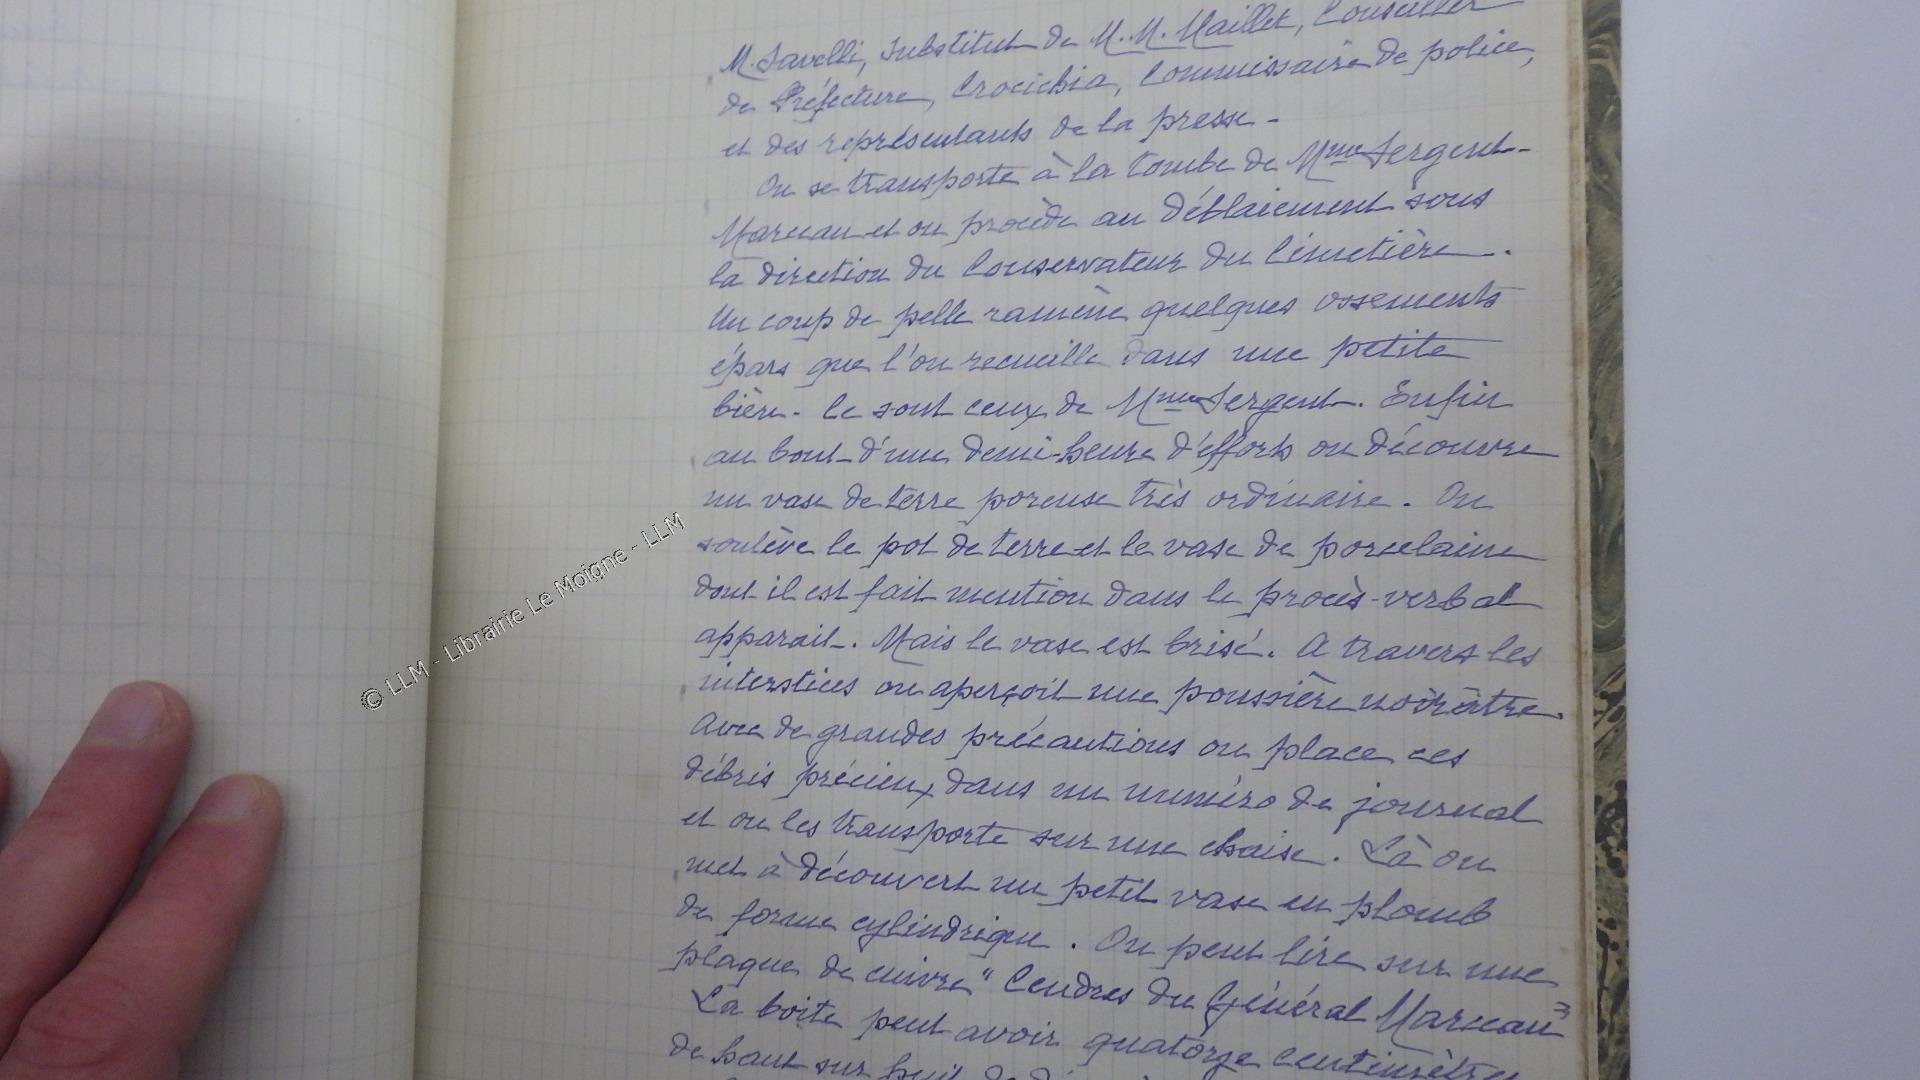 M. Savelli, Substitut de M. M. Maillet, Conseiller
de Préfecture, Crocichia, Commissaire de police,
et des représentants de la presse -
On se transporte à la tombe de Mme Sergent-
Marceau et on procède au déblaiement sous
la direction du Conservateur du Cimetière.
Un coup de pelle ramène quelques ossements
épars que l'on recueille dans une petite
bière. Ce sont ceux de Mme Sergent. Enfin
au bout d'une demi-heure d'efforts on découvre
un vase de terre poreuse très ordinaire. On
soulève le pot de terre et le vase de porcelaine
dont il est fait mention dans le procès-verbal
apparait. Mais le vase est brisé. A travers les
interstices on aperçoit une poussière noirâtre.
Avec de grandes précautions on place ces
débris précieux dans un numéro de journal
et on les transporte sur une chaise. Là on
met à découvert un petit vase en plomb
de forme cylindrique. On peut lire sur une
plaque de cuivre "Cendres du Général Marceau"
La boite peut avoir quatorze centimètres
de haut sur huit de
© LLM - Librairie Le Moigne - LLM